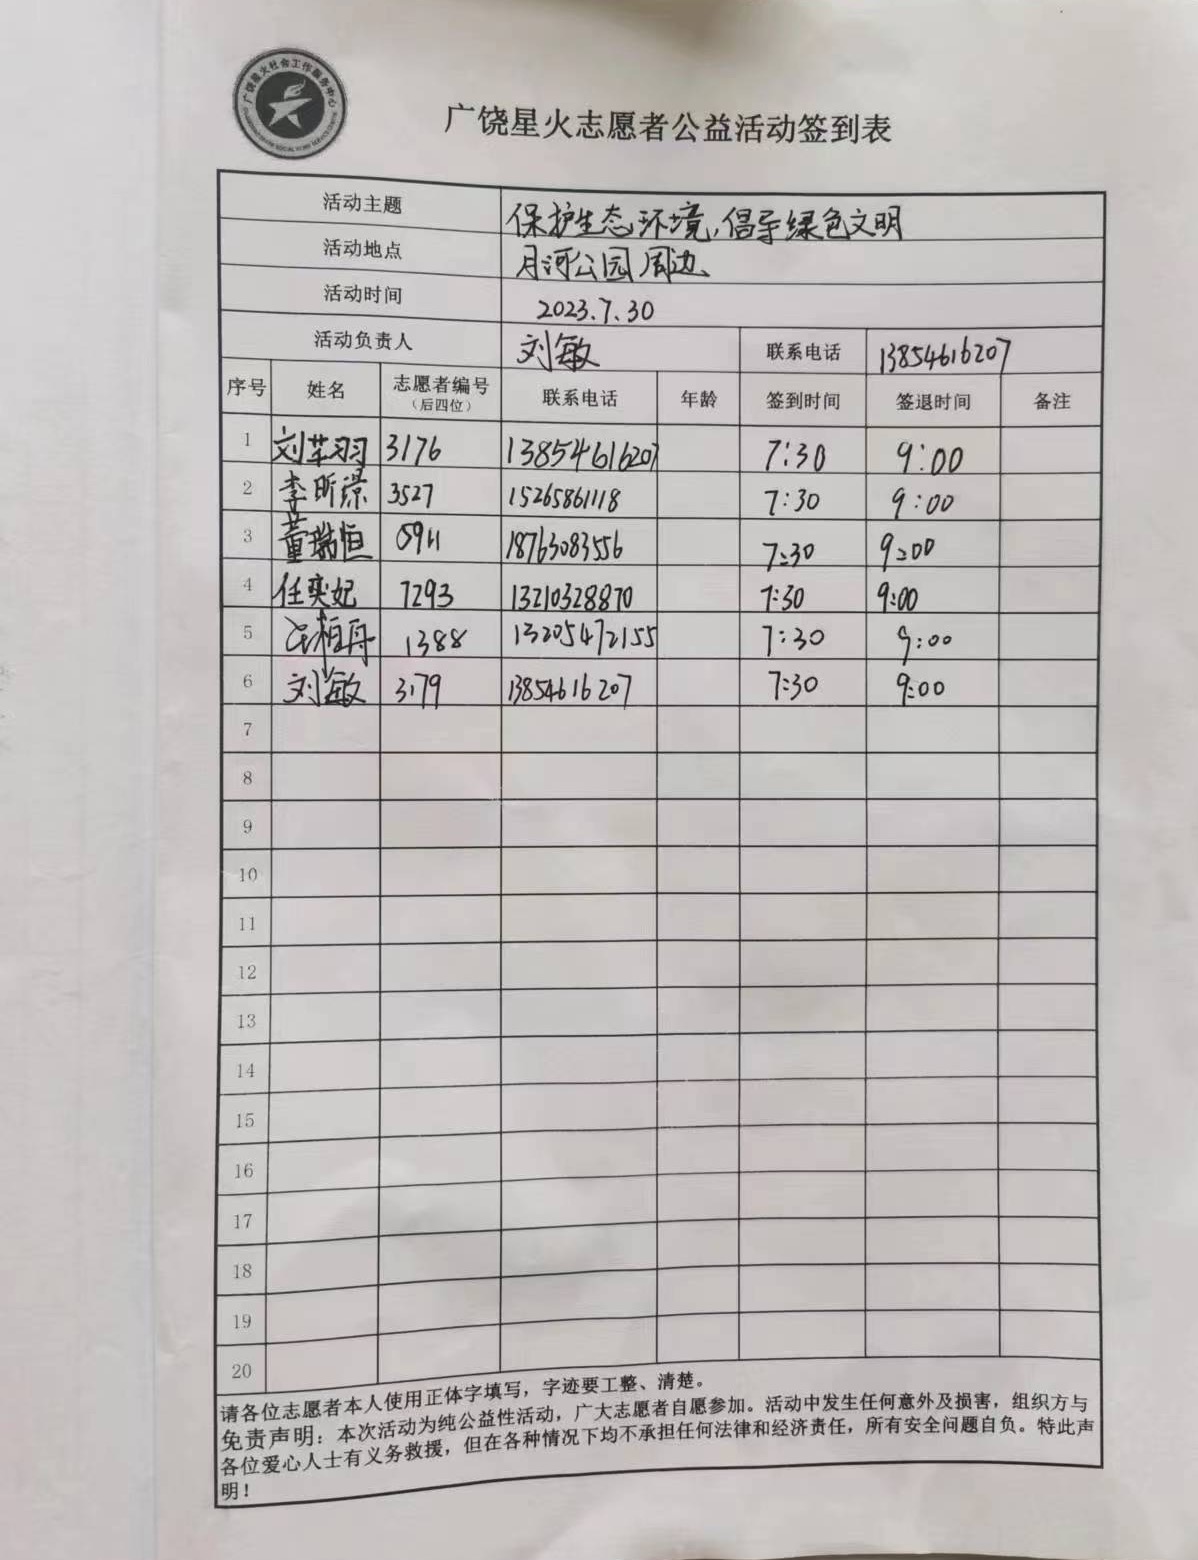 广饶星火社会工作服务中心
广饶星火志愿者公益活动签到表
活动主题 保护生态环境,倡导绿色文明
活动地点 月河公园周边
活动时间 2023.7.30
活动负责人 刘敏 联系电话 13854616207
序号 姓名 志愿者编号(后四位) 联系电话 年龄 签到时间 签退时间 备注
1 刘芊羽 3176 13854616207 7:30 9:00
2 李昕璟 3527 15265861118 7:30 9:00
3 董瑞恒 0911 18763083556 7:30 9:00
4 任奕妃 7293 13210328870 7:30 9:00
5 1388 13205472155 7:30 9:00
6 刘敏 3179 13854616207 7:30 9:00
7
8
9
10
11
12
13
14
15
16
17
18
19
20
请各位志愿者本人使用正体字填写，字迹要工整、清楚。
免责声明：本次活动为纯公益性活动，广大志愿者自愿参加。活动中发生任何意外及损害，组织方与
各位爱心人士有义务救援，但在各种情况下均不承担任何法律和经济责任，所有安全问题自负。特此声
明！